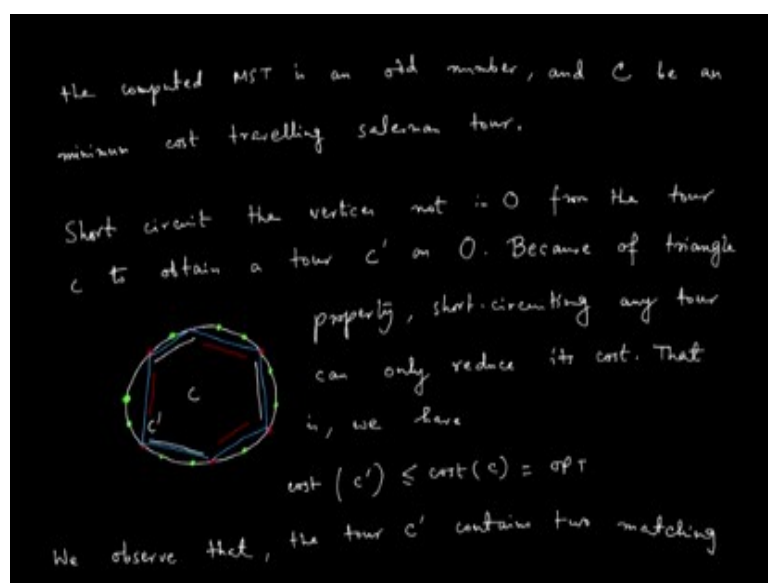 the computed MST is an odd number, and C be an
minimum cost travelling salesman tour.
Short circuit the vertices not in O from the tour
C to obtain a tour C' on O. Because of triangle
property, short-circuiting any tour
can only reduce its cost. That
is, we have
C
C'
cost (C') ≤ cost(C) = OPT
We observe that, the tour C' contains two matching